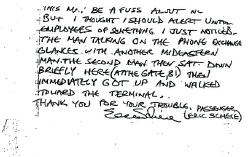 THIS MAY BE A FUSS ABOUT NIL
BUT I THOUGHT I SHOULD ALERT UNITED
EMPLOYEES OF SOMETHING I JUST NOTICED.
THE MAN TALKING ON THE PHONE EXCHANGED
GLANCES WITH ANOTHER MIDEASTERN
MAN. THE SECOND MAN THEN SAT DOWN
BRIEFLY HERE (AT THE GATE, B1) THEN
IMMEDIATELY GOT UP AND WALKED
TOWARD THE TERMINAL.
THANK YOU FOR YOUR TROUBLE. PASSENGER
(ERIC SCHERE)